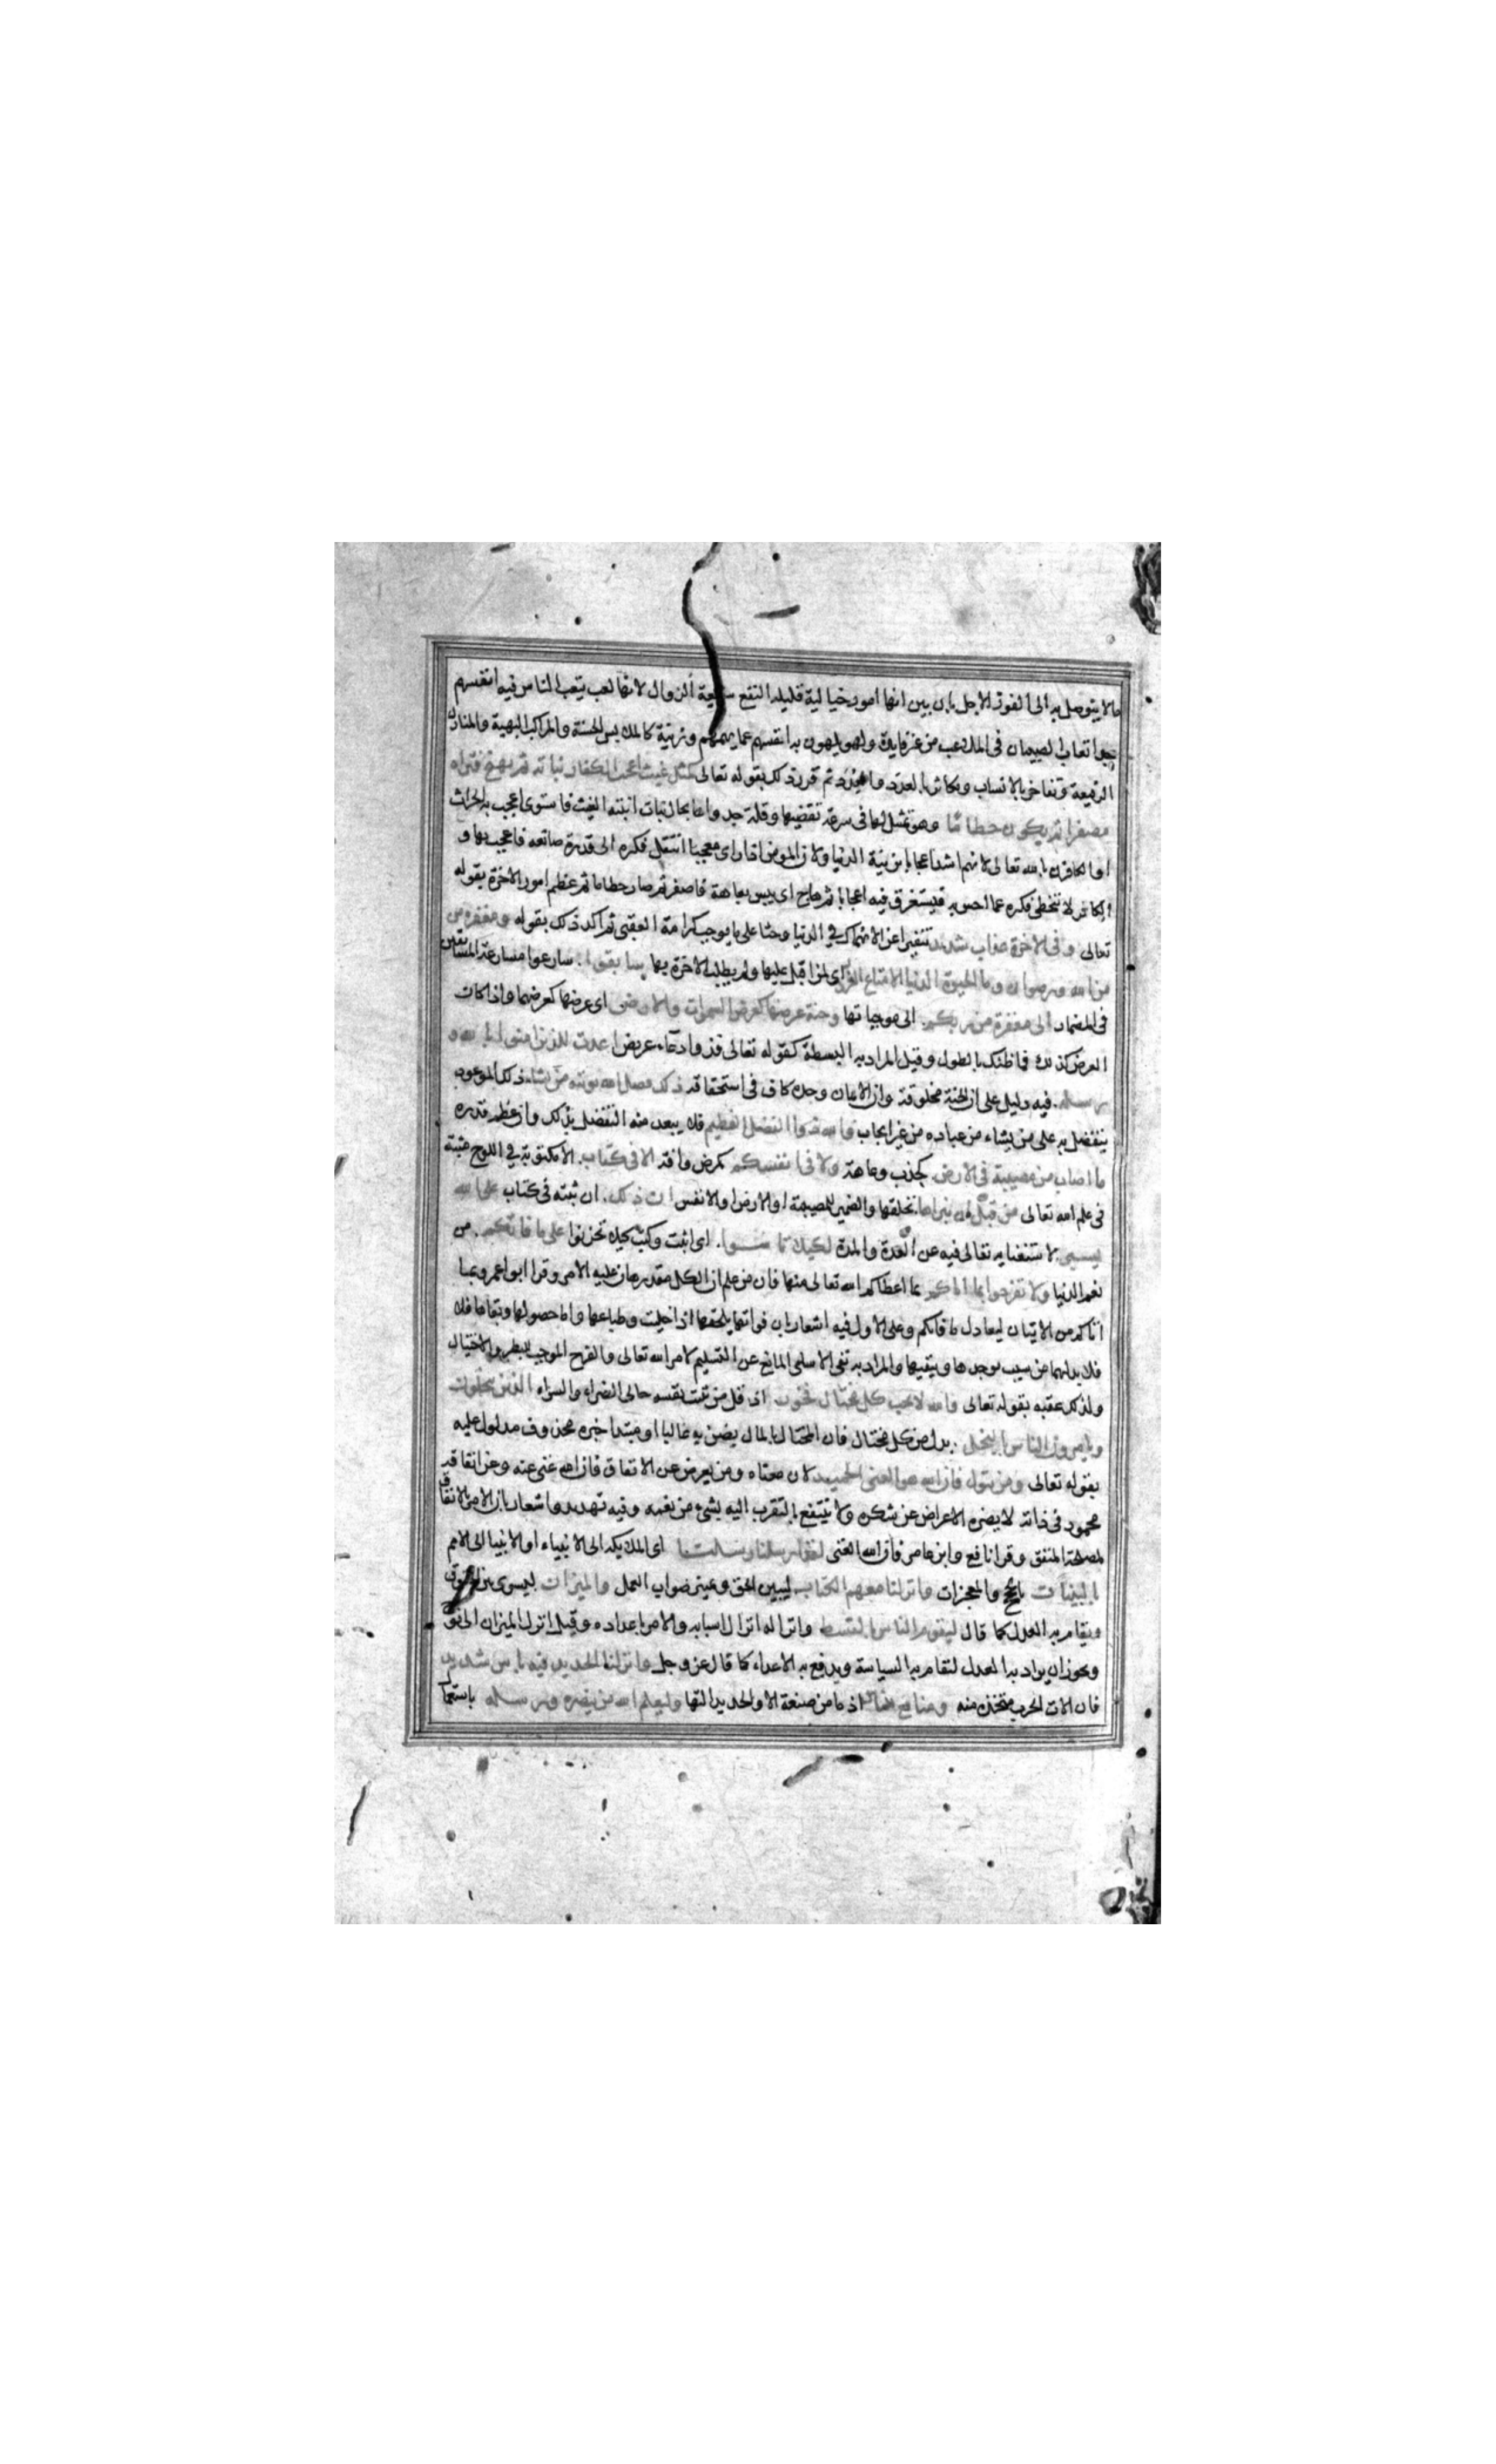 مالا يتوصل به الى الفوز الاجل بان بين انها امور خيالية قليلة النفع سريعة الزوال لانها لعب يتعب الناس فيه انفسهم
جدا اتعاب الصبيان فى الملاعب من غير فايدة ولهو يلهون به انفسهم عما يهمهم وزينة كالملابس الحسنة والمراكب البهية والمنازل
الرفيعة وتفاخر بالانساب وتكاثر بالعدد والعدد ثم قرر ذلك بقوله تعالى كمثل غيث اعجب الكفار نباته ثم يهيج فتراه
مصفرا ثم يكون حطاما وهو تمثيل لها فى سرعة تقضيها وقلة جدواها بحال نبات انبته الغيث فاستوى اعجب به الحراث
او الكافرون بالله تعالى لانهم اشد اعجابا بزينة الدنيا ولان المومن اذا راى معجبا انتقل فكره الى قدرة صانعه فاعجب بها و
الكافر لا يتخطى فكره عما احس به فيستغرق فيه اعجابا ثم هاج اى يبس بعاهة فاصفر ثم صار حطاما ثم عظم امور الاخرة بقوله
تعالى وفى الاخرة عذاب شديد تنفيرا عن الانهماك فى الدنيا وحثا على ما يوجب كرامة العقبى ثم اكد ذلك بقوله ومغفرة من
من الله ورضوان وما الحيوة الدنيا الا متاع الغرور اى لمن اقبل عليها ولم يطلب الاخرة بها سابقوا. سارعوا مسارعة المسابقين
فى المضمار الى مغفرة من ربكم. الى موجباتها وجنة عرضها كعرض السموات والارض اى عرضها كعرضهما واذا كان
العرض كذلك فما ظنك بالطول وقيل المراد به البسطة كقوله تعالى فذو ادعاء عريض اعدت للذين امنوا بالله و
رسله. فيه دليل على ان الجنة مخلوقة وان الايمان وحده كاف فى استحقاقه ذلك فضل الله يوتيه من يشاء. ذلك الموعود
يتفضل به على من يشاء من عباده من غير ايجاب والله ذوا الفضل العظيم فلا يبعد منه التفضل بذلك وان عظم قدره
ما اصاب من مصيبة فى الارض. كجدب وعاهة ولا فى انفسكم كمرض وافة الا فى كتاب. الا مكتوبة فى اللوح مثبتة
فى علم الله تعالى من قبل ان نبراها. نخلقها والضمير للمصيبة او الارض او الانفس ان ذلك. ان ثبته فى كتاب على الله
يسير. لاستغنايه تعالى فيه عن العدة والمدة لكيلا تاسوا. اى اثبت وكتب كيلا تحزنوا على ما فاتكم. من
نعم الدنيا ولا تفرحوا بما اتاكم بما اعطاكم الله تعالى منها فان من علم ان الكل مقدر هان عليه الامر وقرا ابو اعمرو بما
اتاكم من الاتيان ليعادل ما فاتكم وعلى الاول فيه اشعار بان فواتها يلحقها اذا خليت وطباعها واما حصولها وبقاءها فلا
فلا بد لهما من سبب يوجدها ويبقيها والمراد به نفى الاسى المانع عن التسليم لامر الله تعالى والفرح الموجب للبطر والاختيال
ولذلك عقبه بقوله تعالى والله لا يحب كل مختال فخور اذ قل من تثبت نفسه حالى الضراء والسراء الذين يبخلون
ويامرون الناس بالبخل. بدل من كل مختال فان المختال بالمال يضن به غالبا او مبتدا خبره محذوف مدلول عليه
بقوله تعالى ومن يتول فان الله هو الغنى الحميد لان معناه ومن يعرض عن الانفاق فان الله غنى عنه وعن انفاقه
محمود فى ذاته لا يضره الاعراض عن شكره ولا ينتفع بالتقرب اليه بشئ من نعمه وفيه تهديد واشعار بان الامر بالانفاق
لمصلحة المنفق وقرا نافع وابن عامر فان الله الغنى لقد ارسلنا رسلنا اى الملائكة الى الانبياء او الانبيا الى الامم
بالبينات بالحجج والمعجزات وانزلنا معهم الكتاب. ليبين الحق ويميز صواب العمل والميزان ليسوى به الحقوق
ويقام به العدل كما قال ليقوم الناس بالقسط وانزاله انزال اسبابه والامر باعداده وقيل انزل الميزان الى نوح
ويجوز ان يراد به العدل لتقام به السياسة ويدفع به الاعداء كما قال عز وجل وانزلنا الحديد فيه باس شديد
فان الات الحرب متخذة منه ومنافع للناس اذ ما من صنعة الا والحديد التها وليعلم الله من ينصره ورسله باستعمال